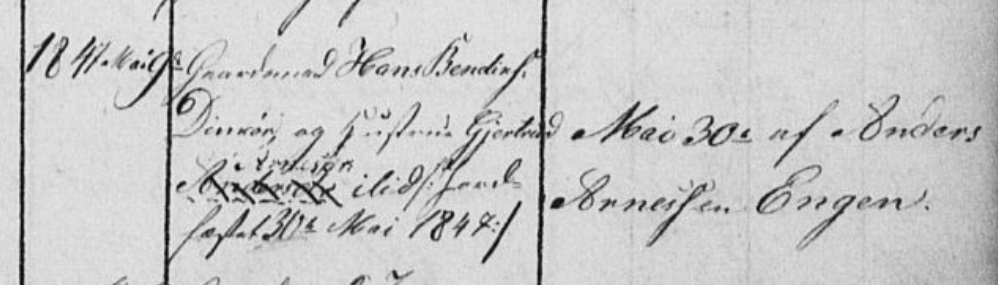 1847 Mai 9de Gaardmand Hans Bendixs.
og Hustrue Gjertrud
Arnesdr.
ilid /: jord=
fæstet 30te Mai 1847 :/
Mai 30te af Anders
Arnessen Engen.